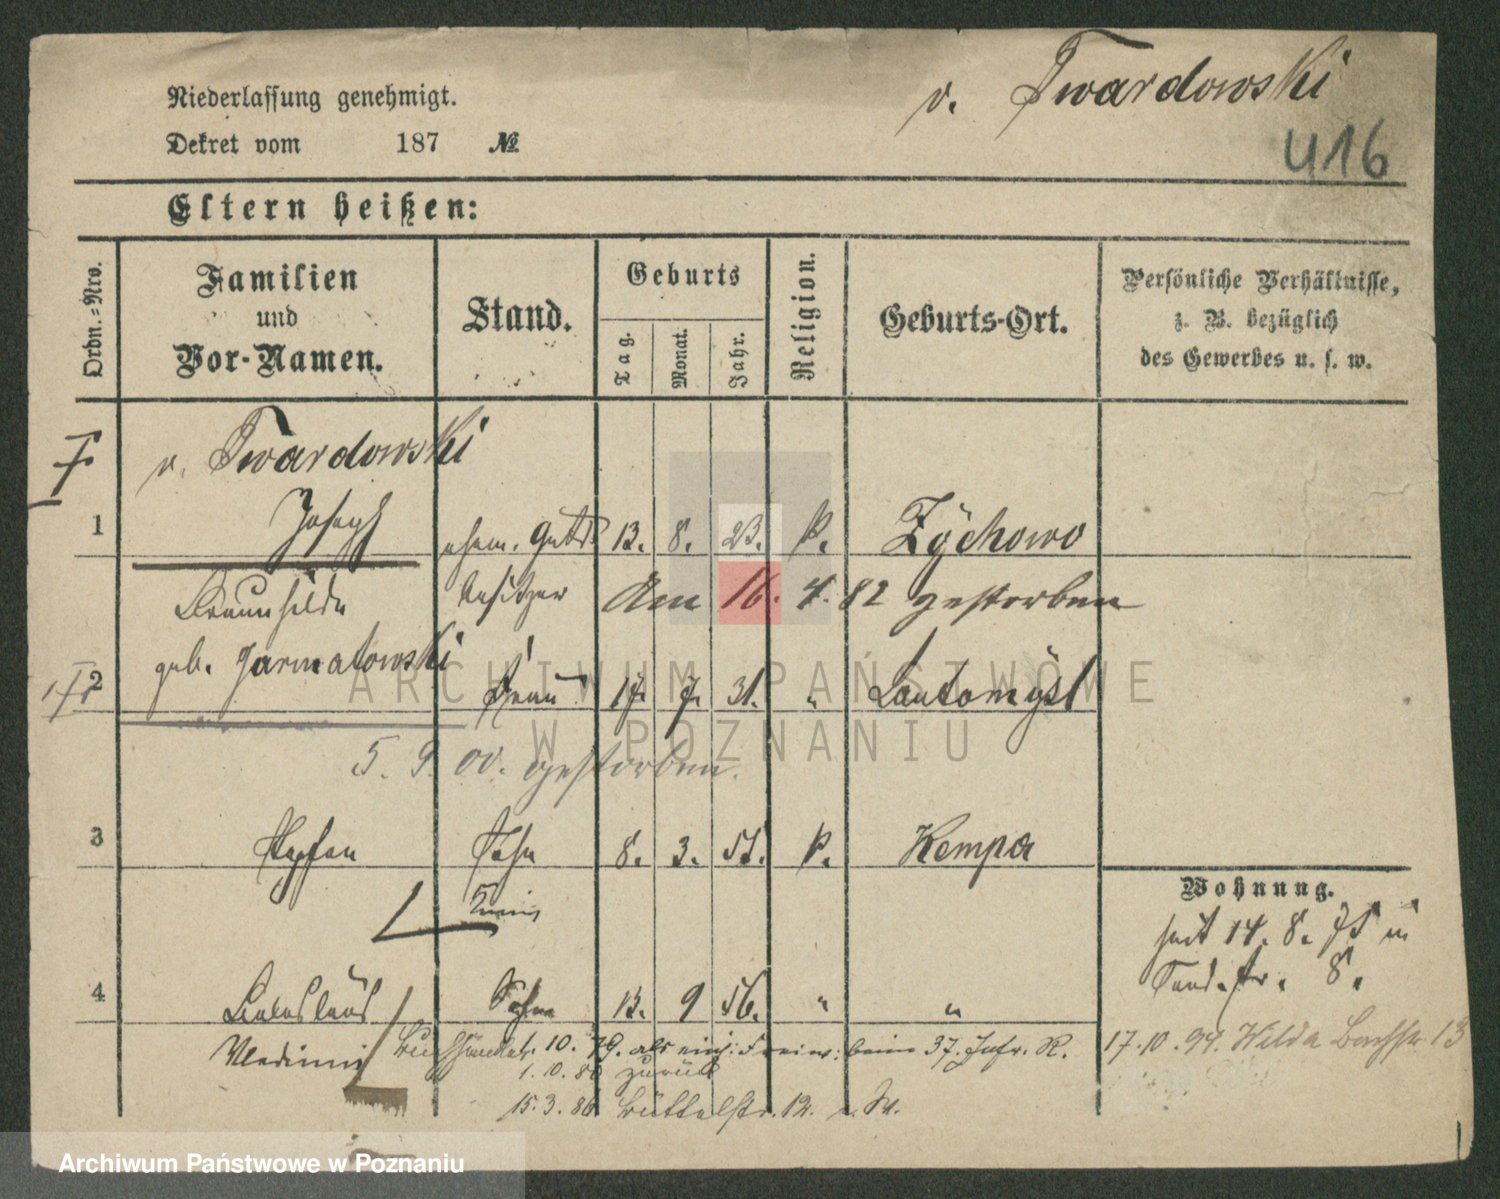 Niederlassung genehmigt.
Dekret vom 187 №
v. Twardowski
416
Eltern heißen:
Ordn.-Nro.
Familien und Vor-Namen.
Stand.
Geburts
Tag.
Monat.
Jahr.
Religion.
Geburts-Ort.
Persönliche Verhältnisse,
z. B. bezüglich
des Gewerbes u. s. w.
v. Twardowski
1 Joseph ehem. Guts 13. 8. 23. k. Zÿchowo
besitzer Am 16. 4. 82 gestorben
geb. Jarmatowski
2 Frau 17. 7. 31. "
5. 9. 00. gestorben.
3 Stephan Sohn 8. 3. k. Kempa
4 Boleslaus Sohn 13. 9 56. " "
Wladimir 10. 79. als einj: Freiw: beim 37. Infr. R.
1. 10. 80 zurück
15. 3. 86 Büttelstr. 12.
Wohnung.
seit 14. 8. 75
8.
17. 10. 94. Wilda Bachstr 13
Archiwum Państwowe w Poznaniu
ARCHIWUM PAŃSTWOWE
W POZNANIU